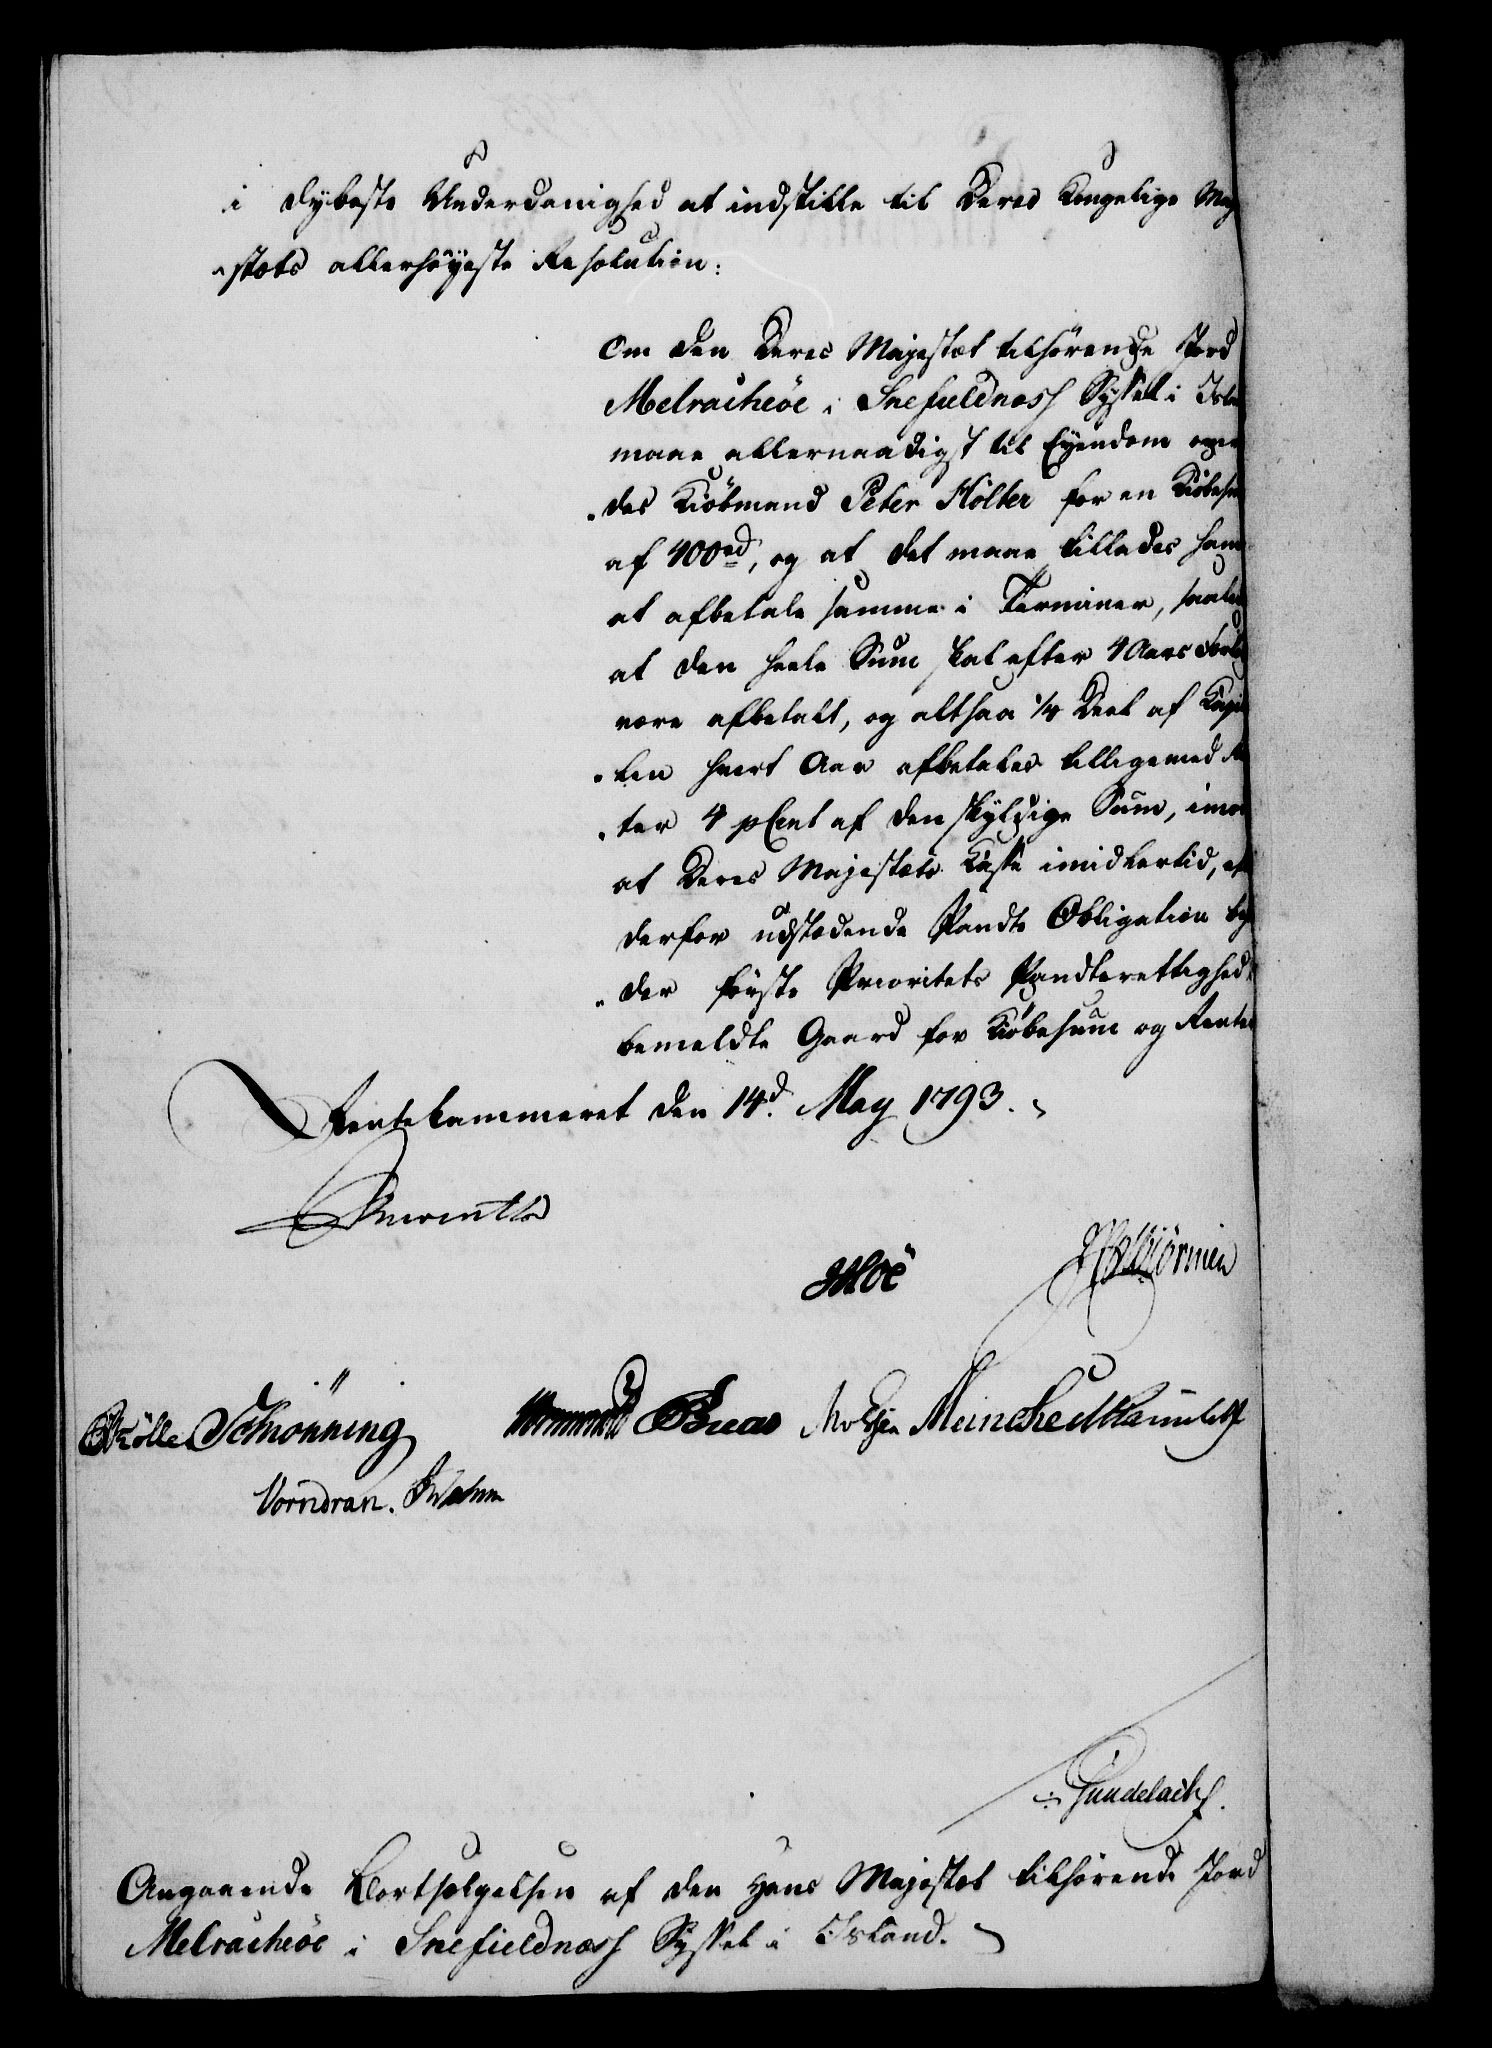 i dybeste Underdanighed at indstille til Deres Kongelige Maj
stæts allerhøyeste Resolution:
Om den Deres Majestæt tilhørende Jord
Melracheöe i Snefieldnæss Syssel i Isla
maae allernaadigst til Eyendom over
des Kiöbmand Peter Hölter for en Kiöbesu
af 400rd, og at det maae tillades ham
at afbetale samme i Terminer, saale
at den heele Sum skal efter 4 Aars Forlø
være afbetalt, og altsaa 1/4 Deel af Kapi
len hvert Aar afbetales tilligemed Re
ter 4 pCent af den skyldige Sum, imo
at Deres Majestæts Kasse imidlertid, ef
derfor udstædende Pandte Obligation be
der første Prioritets Panderettighed i
bemeldte Gaard for Kiöbesum og Renter
Rentekammeret den 14d. May 1793.
Schiönning
Müncheditlauritz
Vorndran.
Gundelach.
Angaaende Bortsælgelsen af den Hans Majestæt tilhørende Jord
Melracheöe i Snefieldnæss Syssel i Island.